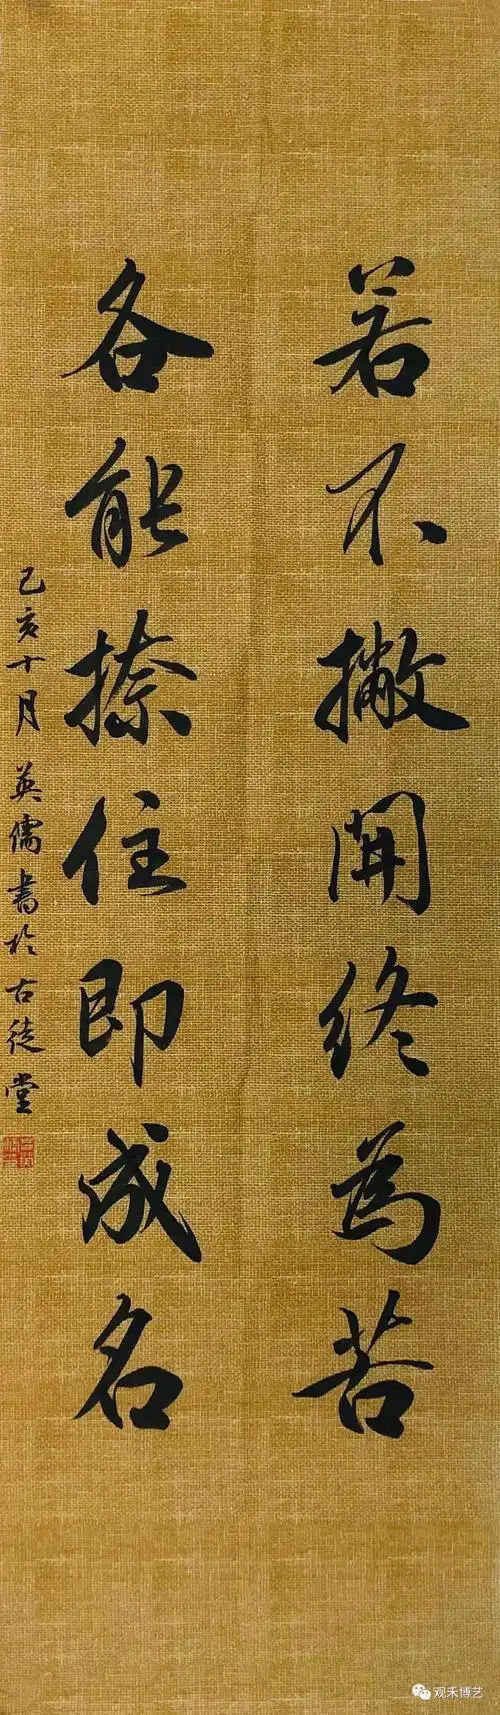 若不撇開終為苦
各能捺住即成名
己亥十月英儒書於古徒堂
观禾博艺